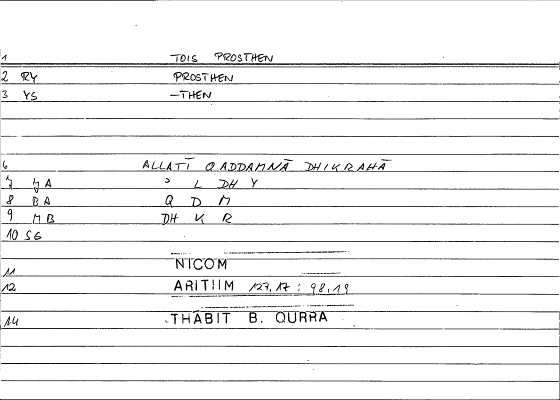 1 TOIS PROSTHEN
2 RY PROSTHEN
3 YS -THEN
6 ALLATĪ QADDAMNĀ DHIKRAHĀ
7 YA ɔ L DH Y
8 BA Q D M
9 MB DH K R
10 SG
11 NICOM
12 ARITHM 127,17 : 98,19
14 THĀBIT B. QURRA